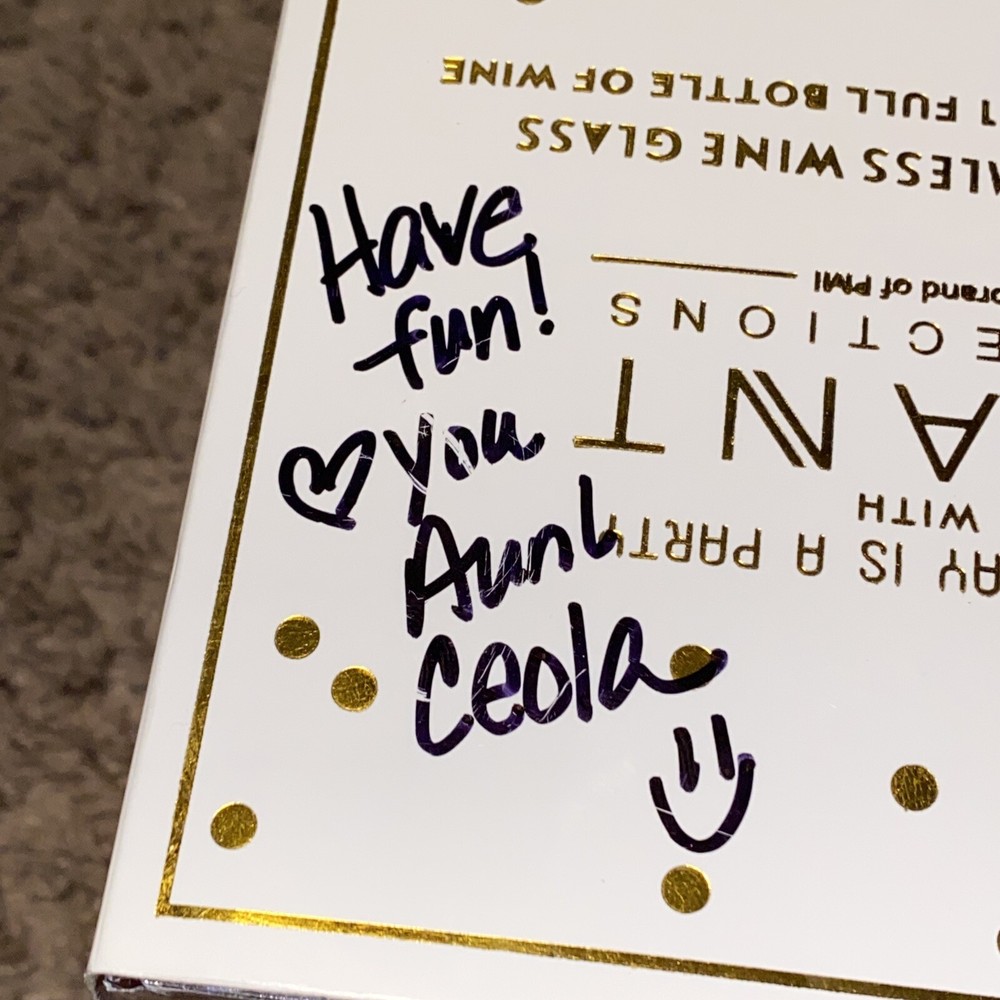 Have
fun!
♡ you
Aunt
Ceola
AY IS A PARTY
WITH
ANT
ECTIONS
brand of PMI
LESS WINE GLASS
1 FULL BOTTLE OF WINE